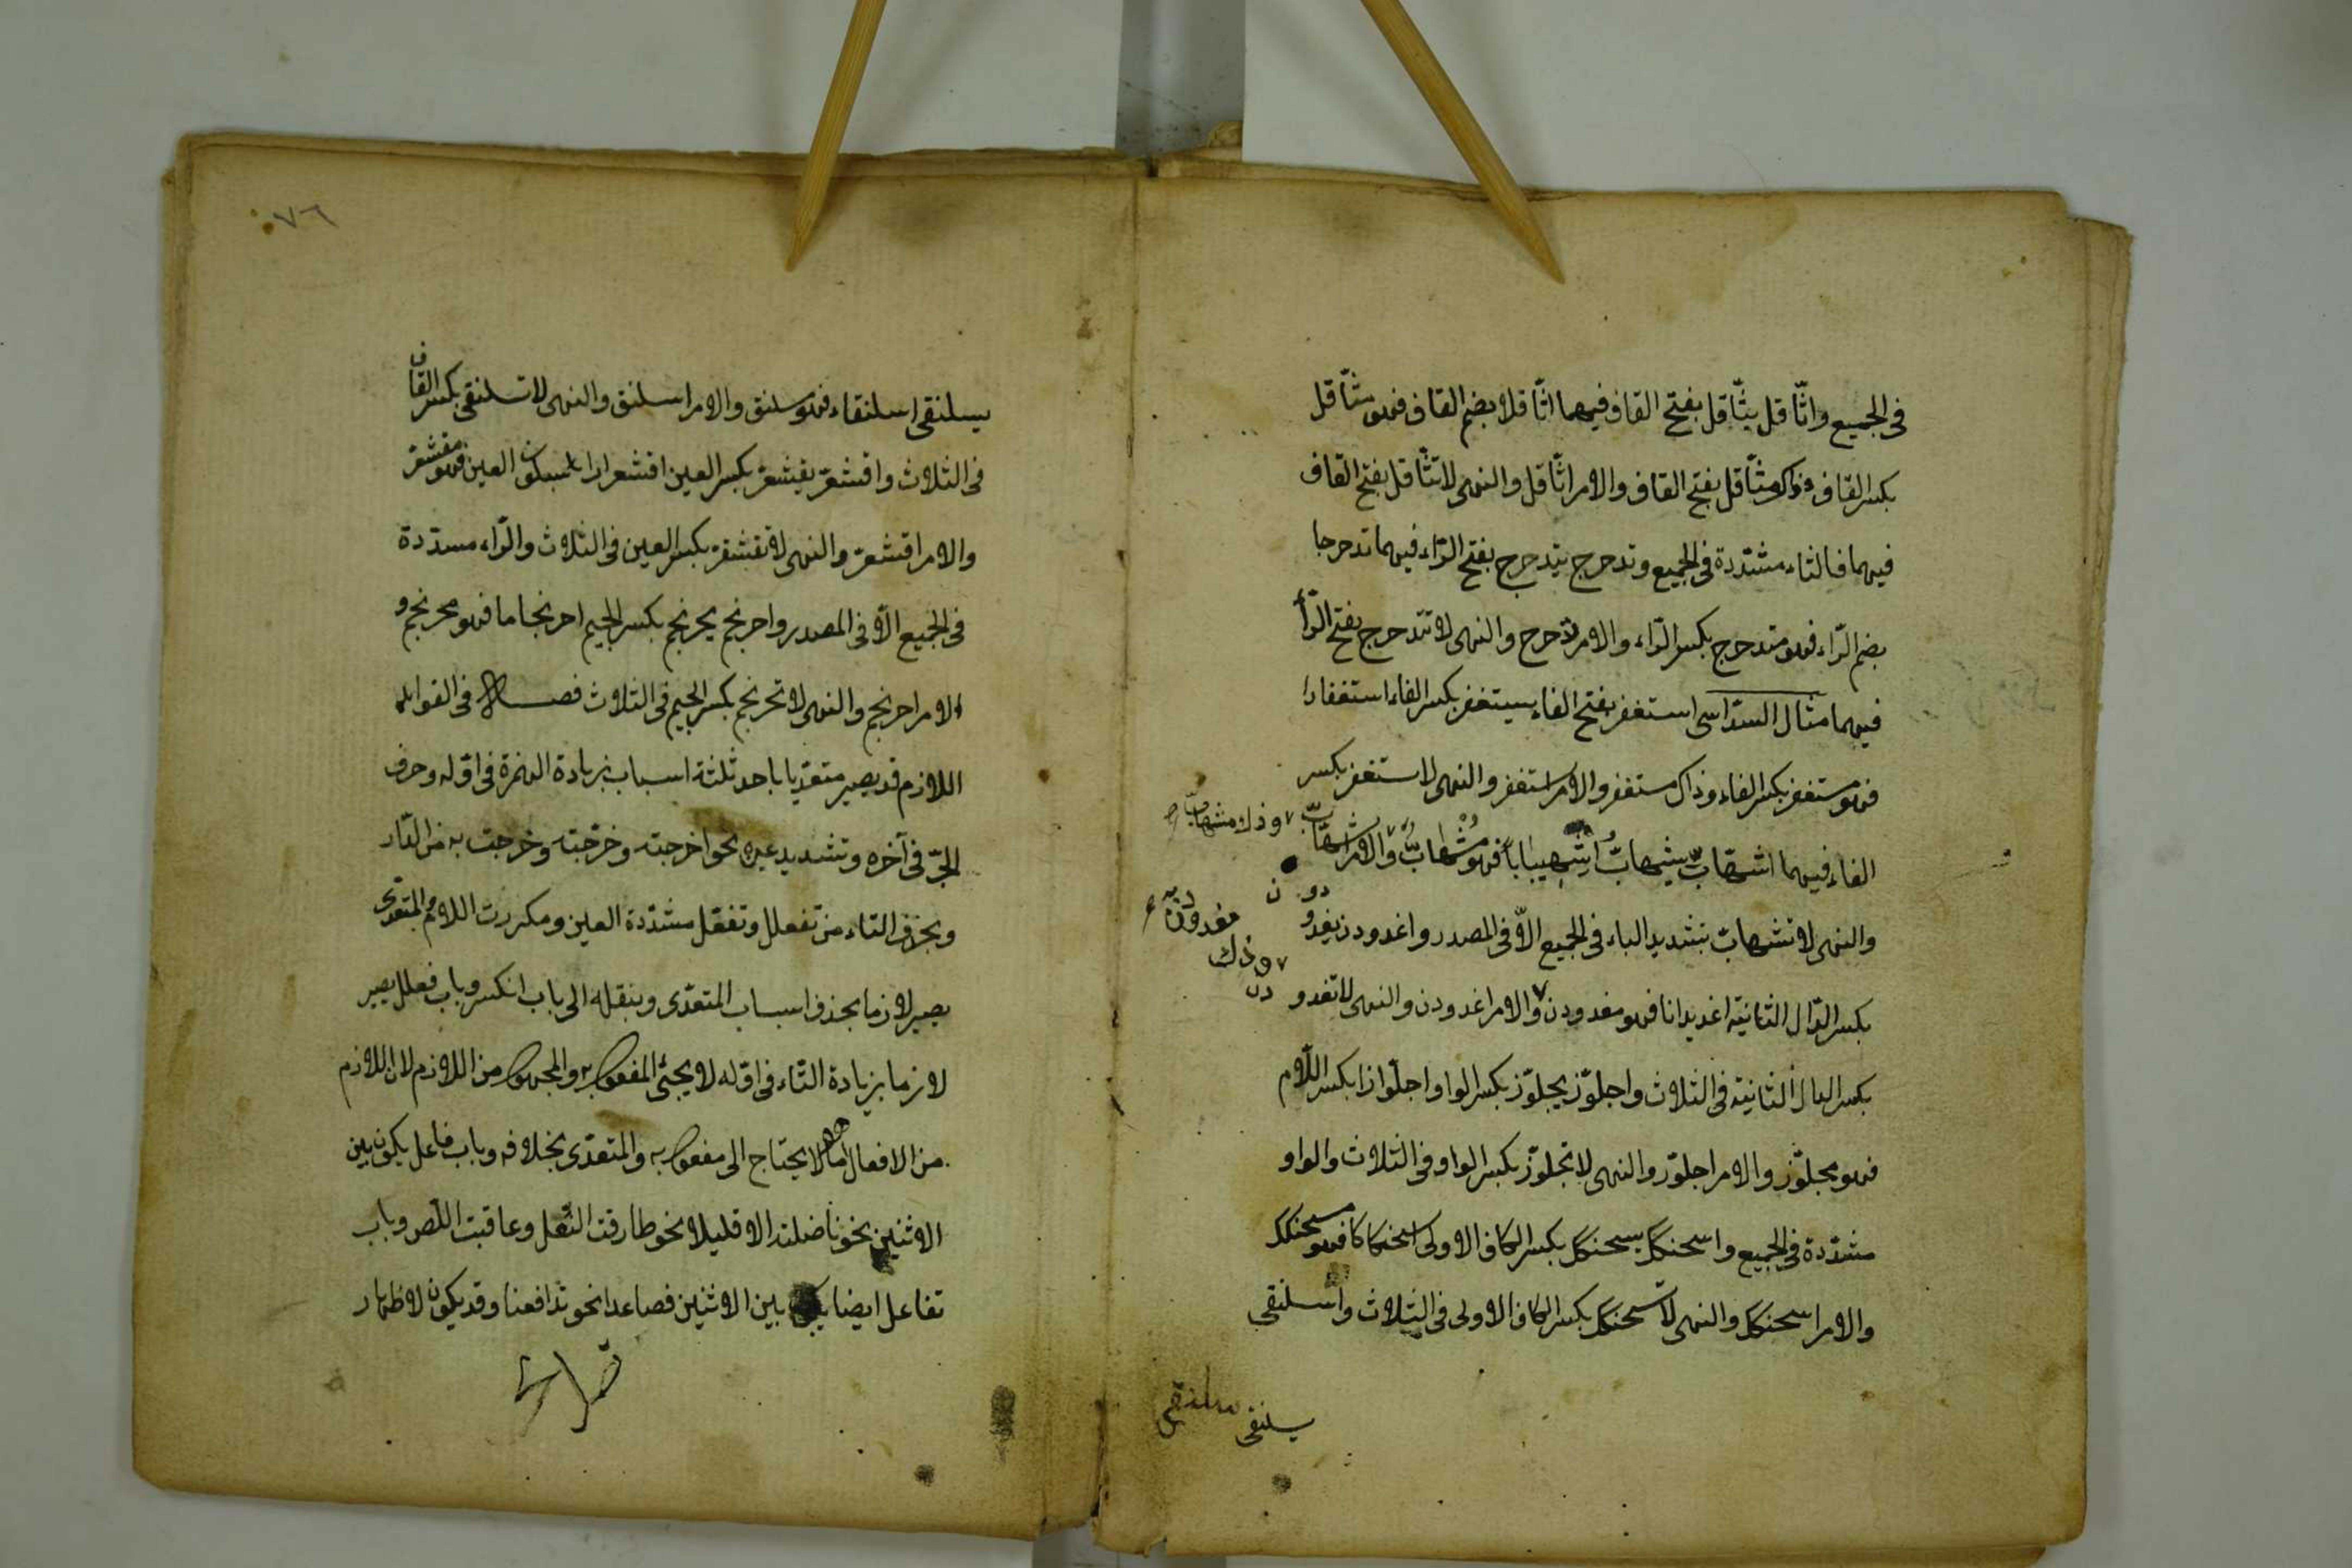 فى الجميع واثّاقل يثّاقل بفتح القاف فيهما اثّاقلا بضم القاف فهو مثّاقل
بكسر القاف وذاك مثّاقل بفتح القاف والامر اثّاقل والنهى لا تثّاقل بفتح القاف
فيهما فالثاء مشدّدة فى الجميع وتدحرج يتدحرج بفتح الرّاء فيهما تدحرجا
بضم الرّاء فهو متدحرج بكسر الرّاء والامر تدحرج والنهى لا تتدحرج بفتح الرّاء
فيهما مثال السدّاسى استغفر بفتح الفاء يستغفر بكسر الفاء استغفارا
فهو مستغفر بكسر الفاء وذاك مستغفر والامر استغفر والنهى لا ستغفر بكسر
الفاء فيهما اشهابّ يشهابّ اشهيبابا فهو مشهابّ والامر اشهابّ
وذلك مشهابّ
والنهى لا تشهابّ بتشديد الباء فى الجميع الّا فى المصدر واغدودن يغدودن
بكسر الدّال الثانية اغديدانا فهو مغدودن والامر اغدودن والنهى لا تغدودن
وذلك مغدودن
بكسر الدال الثانية فى الثلاث واجلوّز يجلوّز بكسر الواو اجلّوازا بكسر اللّام
فهو مجلوّز والامر اجلوّز والنهى لا تجلوّز بكسر الواو فى الثلاث والواو
مشدّدة فى الجميع واسحنكك يسحنكك بكسر الكاف الاولى اسحنكاكا فهو مسحنكك
والامر اسحنكك والنهى لا تسحنكك بكسر الكاف الاولى فى الثلاث واسلنقى
يسلنقى
٧٦
يسلنقى اسلنقاء فهو مسلنق والامر اسلنق والنهى لا تسلنقى بكسر القاف
فى الثلاث واقشعرّ يقشعرّ بكسر العين اقشعرارا بسكون العين فهو مقشعرّ
والامر اقشعرّ والنهى لا تقشعرّ بكسر العين فى الثلاث والرّاء مسدّدة
فى الجميع الّا فى المصدر واحرنجم يحرنجم بكسر الجيم احرنجاما فهو محرنجم و
الامر احرنجم والنهى لا تحرنجم بكسر الجيم فى الثلاث فصل فى الفوائد
اللازم قد يصير متعدّيا باحد ثلثة اسباب بزيادة الهمزة فى اوّله وحرف
الجرّ فى آخره وتشديد عينه نحو اخرجته وخرّجته وخرجت به من الدّار
وبحذف التاء من تفعلل وتفعّل مشدّدة العين ومكررت اللام والمتعدّى
يصير لازما بحذف اسباب المتعدّى وبنقله الى باب انكسر وباب فعلل يصير
لازما بزيادة التّاء فى اوّله لا يجئ المفعول به والمجهول من اللازم لان اللازم
من الافعال ما لا يحتاج الى مفعول به والمتعدّى بخلافه وباب فاعل يكون بين
الاثنين نحو ناضلته الا قليلا نحو طارقت النّعل وعاقبت اللّص وباب
تفاعل ايضا يكون بين الاثنين فصاعدا نحو تدافعنا وقد يكون لاظهار